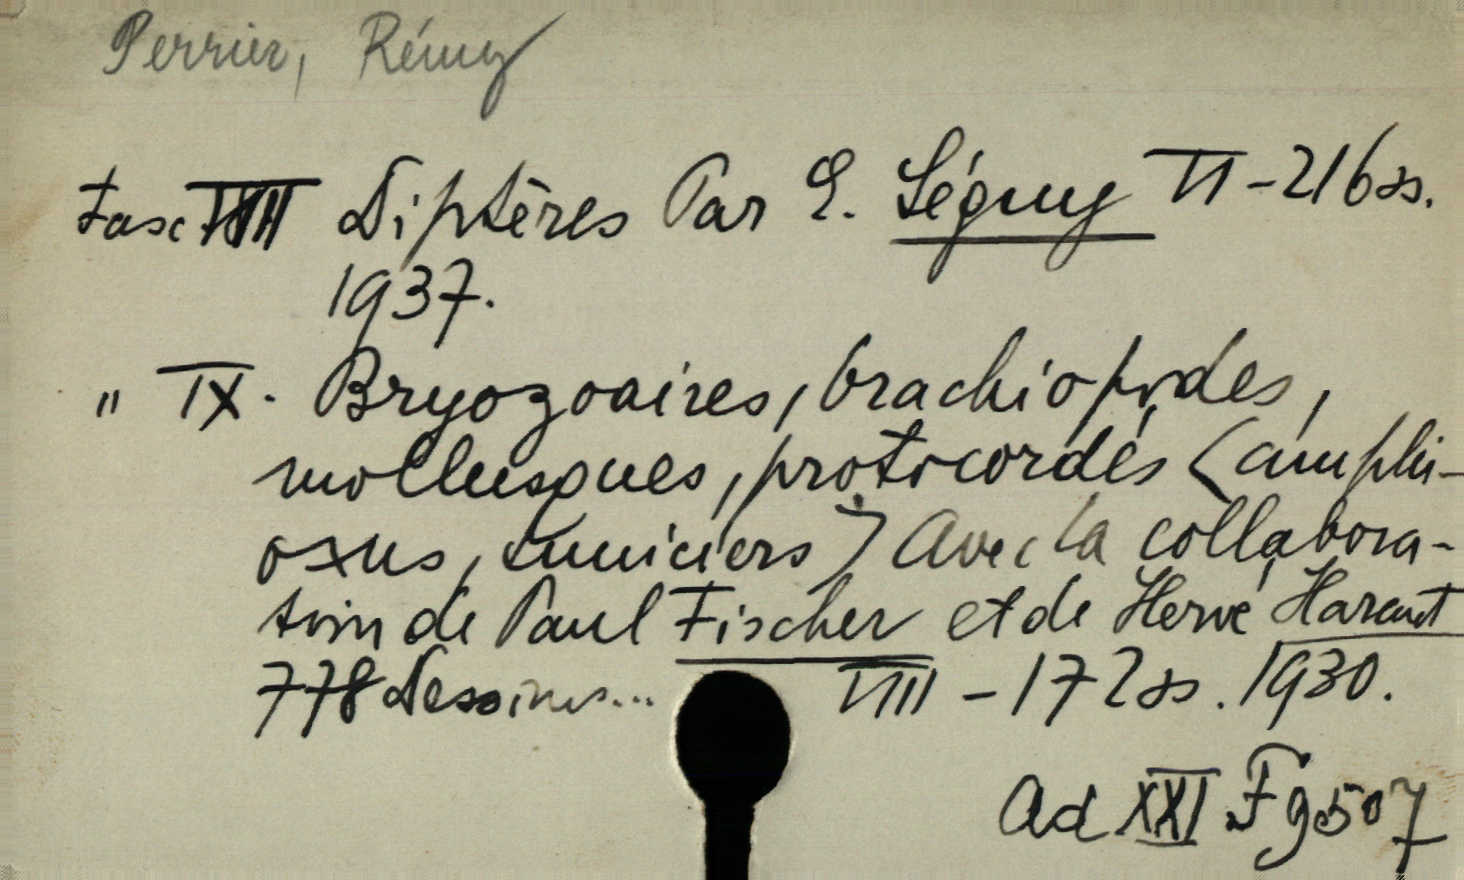 Perrier, Rémy
Fasc VIII Diptères Par E. Séguy VI-216ss.
1937.
" IX. Bryozoaires, brachiopodes,
mollusques, protocordés (amphi-
oxus, tuniciers) Avec la collabora-
tion de Paul Fischer et de Hervé Harant
778 Dessins... VIII-172ss. 1930.
Ad XXI. Fg 507